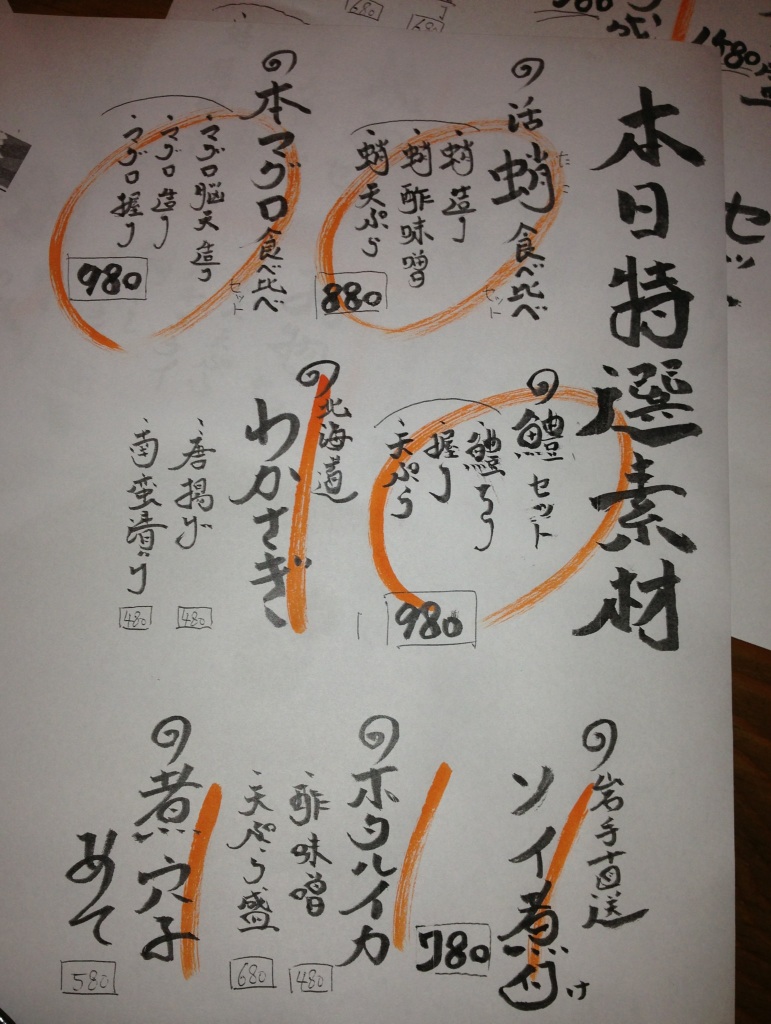 本日特選素材
活蛸食べ比べ
たこ
セット
、蛸造り
、蛸酢味噌
、蛸天ぷら
880
本マグロ食べ比べ
セット
、マグロ脳天造り
、マグロ造り
、マグロ握り
980
鱧セット
、鱧ちり
、握り
、天ぷら
980
北海道
わかさぎ
、唐揚げ
480
、南蛮漬け
480
岩手直送
ソイ煮付け
780
ホタルイカ
、酢味噌
480
、天ぷら盛
680
煮穴子
あて
580
1480
セット
680